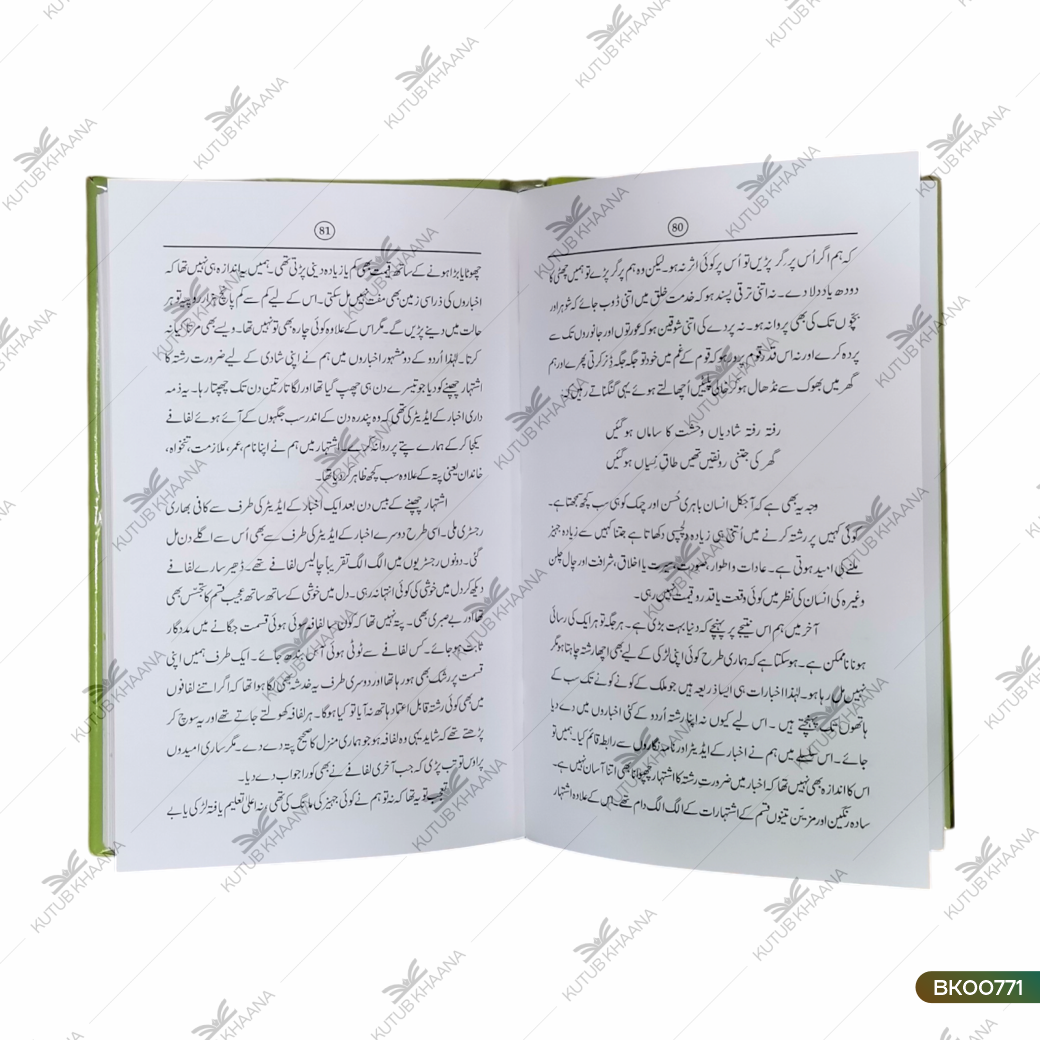 80
کہ ہم اگر اُس پر گر پڑیں تو اُس پر کوئی اثر نہ ہو۔ لیکن وہ ہم پر گر پڑے تو ہمیں چھٹی کا
دودھ یاد دلا دے۔ نہ اتنی ترقی پسند ہو کہ خدمت خلق میں اتنی ڈوب جائے کہ شوہر اور
بچوں تک کی بھی پروا نہ ہو۔ نہ پردے کی اتنی شوقین ہو کہ عورتوں اور جانوروں تک سے
پردہ کرے اور نہ اس قدر قوم پرور ہو کہ قوم کے غم میں خود تو جگہ جگہ ڈنر کرتی پھرے اور ہم
گھر میں بھوک سے نڈھال ہو کر خالی پلیٹیں اُچھالتے ہوئے یہی گنگناتے رہیں کہ
رفتہ رفتہ شادیاں وحشت کا ساماں ہو گئیں
گھر کی جتنی رونقیں تھیں طاقِ نسیاں ہو گئیں
وجہ یہ بھی ہے کہ آجکل انسان باہری حُسن اور چمک کو ہی سب کچھ سمجھتا ہے۔
کوئی کہیں پر رشتہ کرنے میں اُتنی ہی زیادہ دلچسپی دکھاتا ہے جتنا کہیں سے زیادہ جہیز
ملنے کی امید ہوتی ہے۔ عادات و اطوار، صورت، سیرت یا اخلاق، شرافت اور چال چلن
وغیرہ کی انسان کی نظر میں کوئی وقعت یا قدر و قیمت نہیں رہی۔
آخر میں ہم اس نتیجے پر پہنچے کہ دنیا بہت بڑی ہے۔ ہر جگہ تو ہر ایک کی رسائی
ہونا ناممکن ہے۔ ہو سکتا ہے کہ ہماری طرح کوئی اپنی لڑکی کے لیے بھی اچھا رشتہ چاہتا ہو مگر
نہیں مل رہا ہو۔ لہٰذا اخبارات ہی ایسا ذریعہ ہیں جو ملک کے کونے کونے تک سب کے
ہاتھوں تک پہنچتے ہیں۔ اس لیے کیوں نہ اپنا رشتہ اُردو کے کئی اخباروں میں دے دیا
جائے۔ اس سلسلے میں ہم نے اخبار کے ایڈیٹر اور نامہ نگاروں سے رابطہ قائم کیا۔ ہمیں تو
اس کا اندازہ بھی نہیں تھا کہ اخبار میں ضرورتِ رشتہ کا اشتہار چھپوانا بھی اتنا آسان نہیں ہے۔
سادہ رنگین اور مزین تینوں قسم کے اشتہارات کے الگ الگ دام تھے۔ اس کے علاوہ اشتہار
81
چھوٹا یا بڑا ہونے کے ساتھ قیمت بھی کم یا زیادہ دینی پڑتی تھی۔ ہمیں یہ اندازہ ہی نہیں تھا کہ
اخباروں کی ذرا سی زمین بھی مفت نہیں مل سکتی۔ اس کے لیے کم سے کم پانچ ہزار روپیہ تو ہر
حالت میں دینے پڑیں گے۔ مگر اس کے علاوہ کوئی چارہ بھی تو نہیں تھا۔ ویسے بھی مرتا کیا نہ
کرتا۔ لہٰذا اُردو کے دو مشہور اخباروں میں ہم نے اپنی شادی کے لیے ضرورت رشتہ کا
اشتہار چھپنے کو دیا جو تیسرے دن ہی چھپ گیا تھا اور لگاتار تین دن تک چھپتا رہا۔ یہ ذمہ
داری اخبار کے ایڈیٹر کی تھی کہ وہ پندرہ دن کے اندر سب جگہوں کے آئے ہوئے لفافے
یکجا کر کے ہمارے پتے پر روانہ کرے۔ اشتہار میں ہم نے اپنا نام، عمر، ملازمت، تنخواہ،
خاندان یعنی پتہ کے علاوہ سب کچھ ظاہر کر دیا تھا۔
اشتہار چھپنے کے بیس دن بعد ایک اخبار کے ایڈیٹر کی طرف سے کافی بھاری
رجسٹری ملی۔ اسی طرح دوسرے اخبار کے ایڈیٹر کی طرف سے بھی اُس سے اگلے دن مل
گئی۔ دونوں رجسٹریوں میں الگ الگ تقریباً چالیس لفافے تھے۔ ڈھیر سارے لفافے
دیکھ کر دل میں خوشی کی کوئی انتہا نہ رہی۔ دل میں خوشی کے ساتھ ساتھ عجیب قسم کا تجسّس بھی
تھا اور بے صبری بھی۔ پتہ نہیں تھا کہ کون سا لفافہ سوئی ہوئی قسمت جگانے میں مددگار
ثابت ہو جائے۔ کس لفافے سے ٹوٹی ہوئی آس بندھ جائے۔ ایک طرف ہمیں اپنی
قسمت پر رشک بھی ہو رہا تھا اور دوسری طرف یہ خدشہ بھی لگا ہوا تھا کہ اگر اتنے لفافوں
میں بھی کوئی رشتہ قابل اعتماد ہاتھ نہ آیا تو کیا ہوگا۔ ہر لفافہ کھولتے جاتے تھے اور یہ سوچ کر
پڑھتے تھے کہ شاید یہی وہ لفافہ ہو جو ہماری منزل کا صحیح پتہ دے دے۔ مگر ساری امیدوں
پر اوس تو تب پڑی کہ جب آخری لفافے نے بھی کورا جواب دے دیا۔
تعجب تو یہ تھا کہ نہ تو ہم نے کوئی جہیز کی مانگ کی تھی، نہ اعلیٰ تعلیم یافتہ لڑکی یا بے
KUTUB KHAANA
BK00771